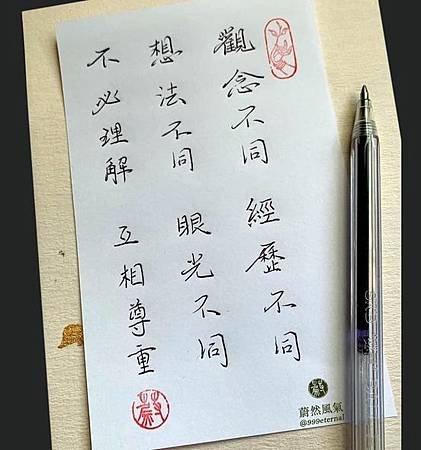 觀念不同 經歷不同
想法不同 眼光不同
不必理解 互相尊重
蔚然風氣
@999eternal